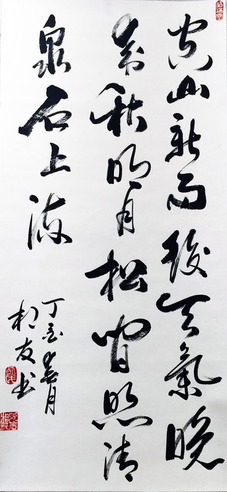 空山新雨後天氣晚
来秋明月松间照清
泉石上流
丁亥春月
柏友书